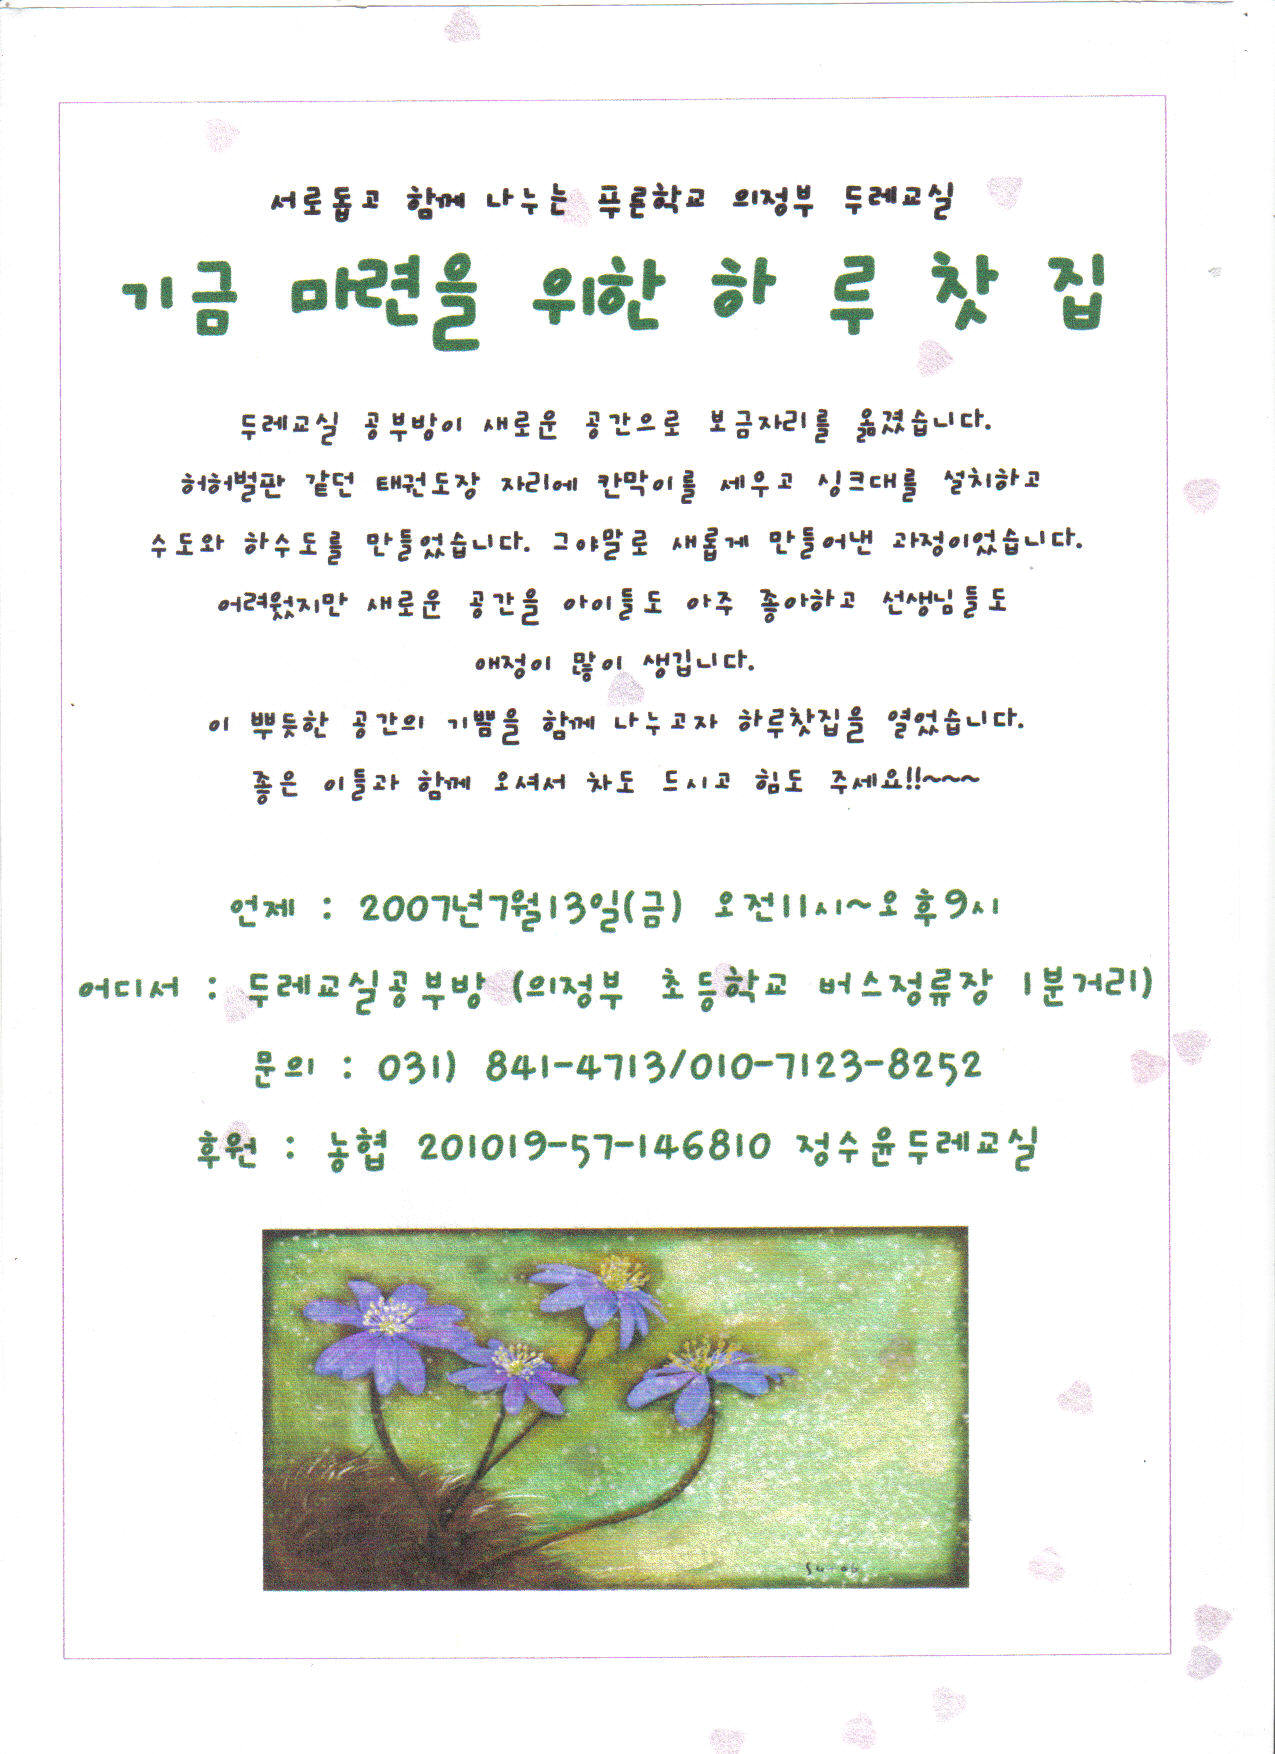 서로돕고 함께 나누는 푸른학교 의정부 두레교실
기금 마련을 위한 하 루 찻 집
두레교실 공부방이 새로운 공간으로 보금자리를 옮겼습니다.
허허벌판 같던 태권도장 자리에 칸막이를 세우고 싱크대를 설치하고
수도와 하수도를 만들었습니다. 그야말로 새롭게 만들어낸 과정이었습니다.
어려웠지만 새로운 공간을 아이들도 아주 좋아하고 선생님들도
애정이 많이 생깁니다.
이 뿌듯한 공간의 기쁨을 함께 나누고자 하루찻집을 열었습니다.
좋은 이들과 함께 오셔서 차도 드시고 힘도 주세요!!~~~
언제 : 2007년7월13일(금) 오전11시~오후9시
어디서 : 두레교실공부방 (의정부 초등학교 버스정류장 1분거리)
문의 : 031) 841-4713/010-7123-8252
후원 : 농협 201019-57-146810 정수윤두레교실